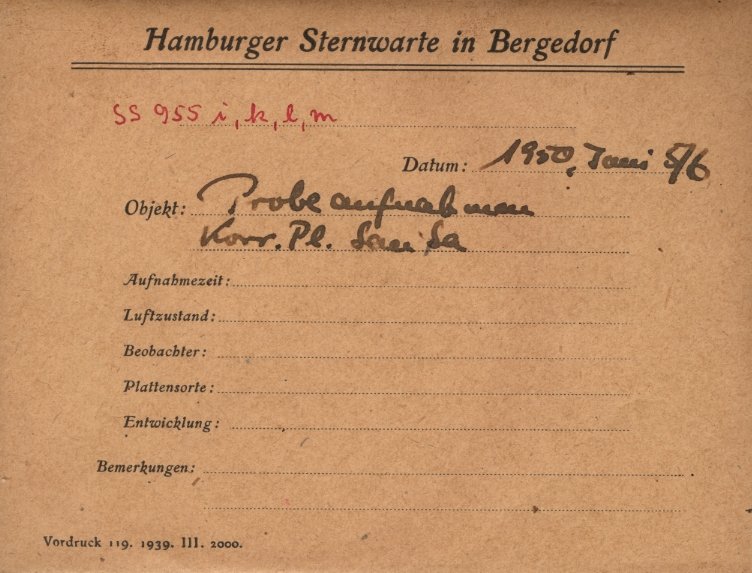 Hamburger Sternwarte in Bergedorf
SS 955 i, k, l, m
Datum: 1950, Juni 5/6
Objekt: Probeaufnahmen
Korr. Pl.
Aufnahmezeit:
Luftzustand:
Beobachter:
Plattensorte:
Entwicklung:
Bemerkungen:
Vordruck 119. 1939. III. 2000.